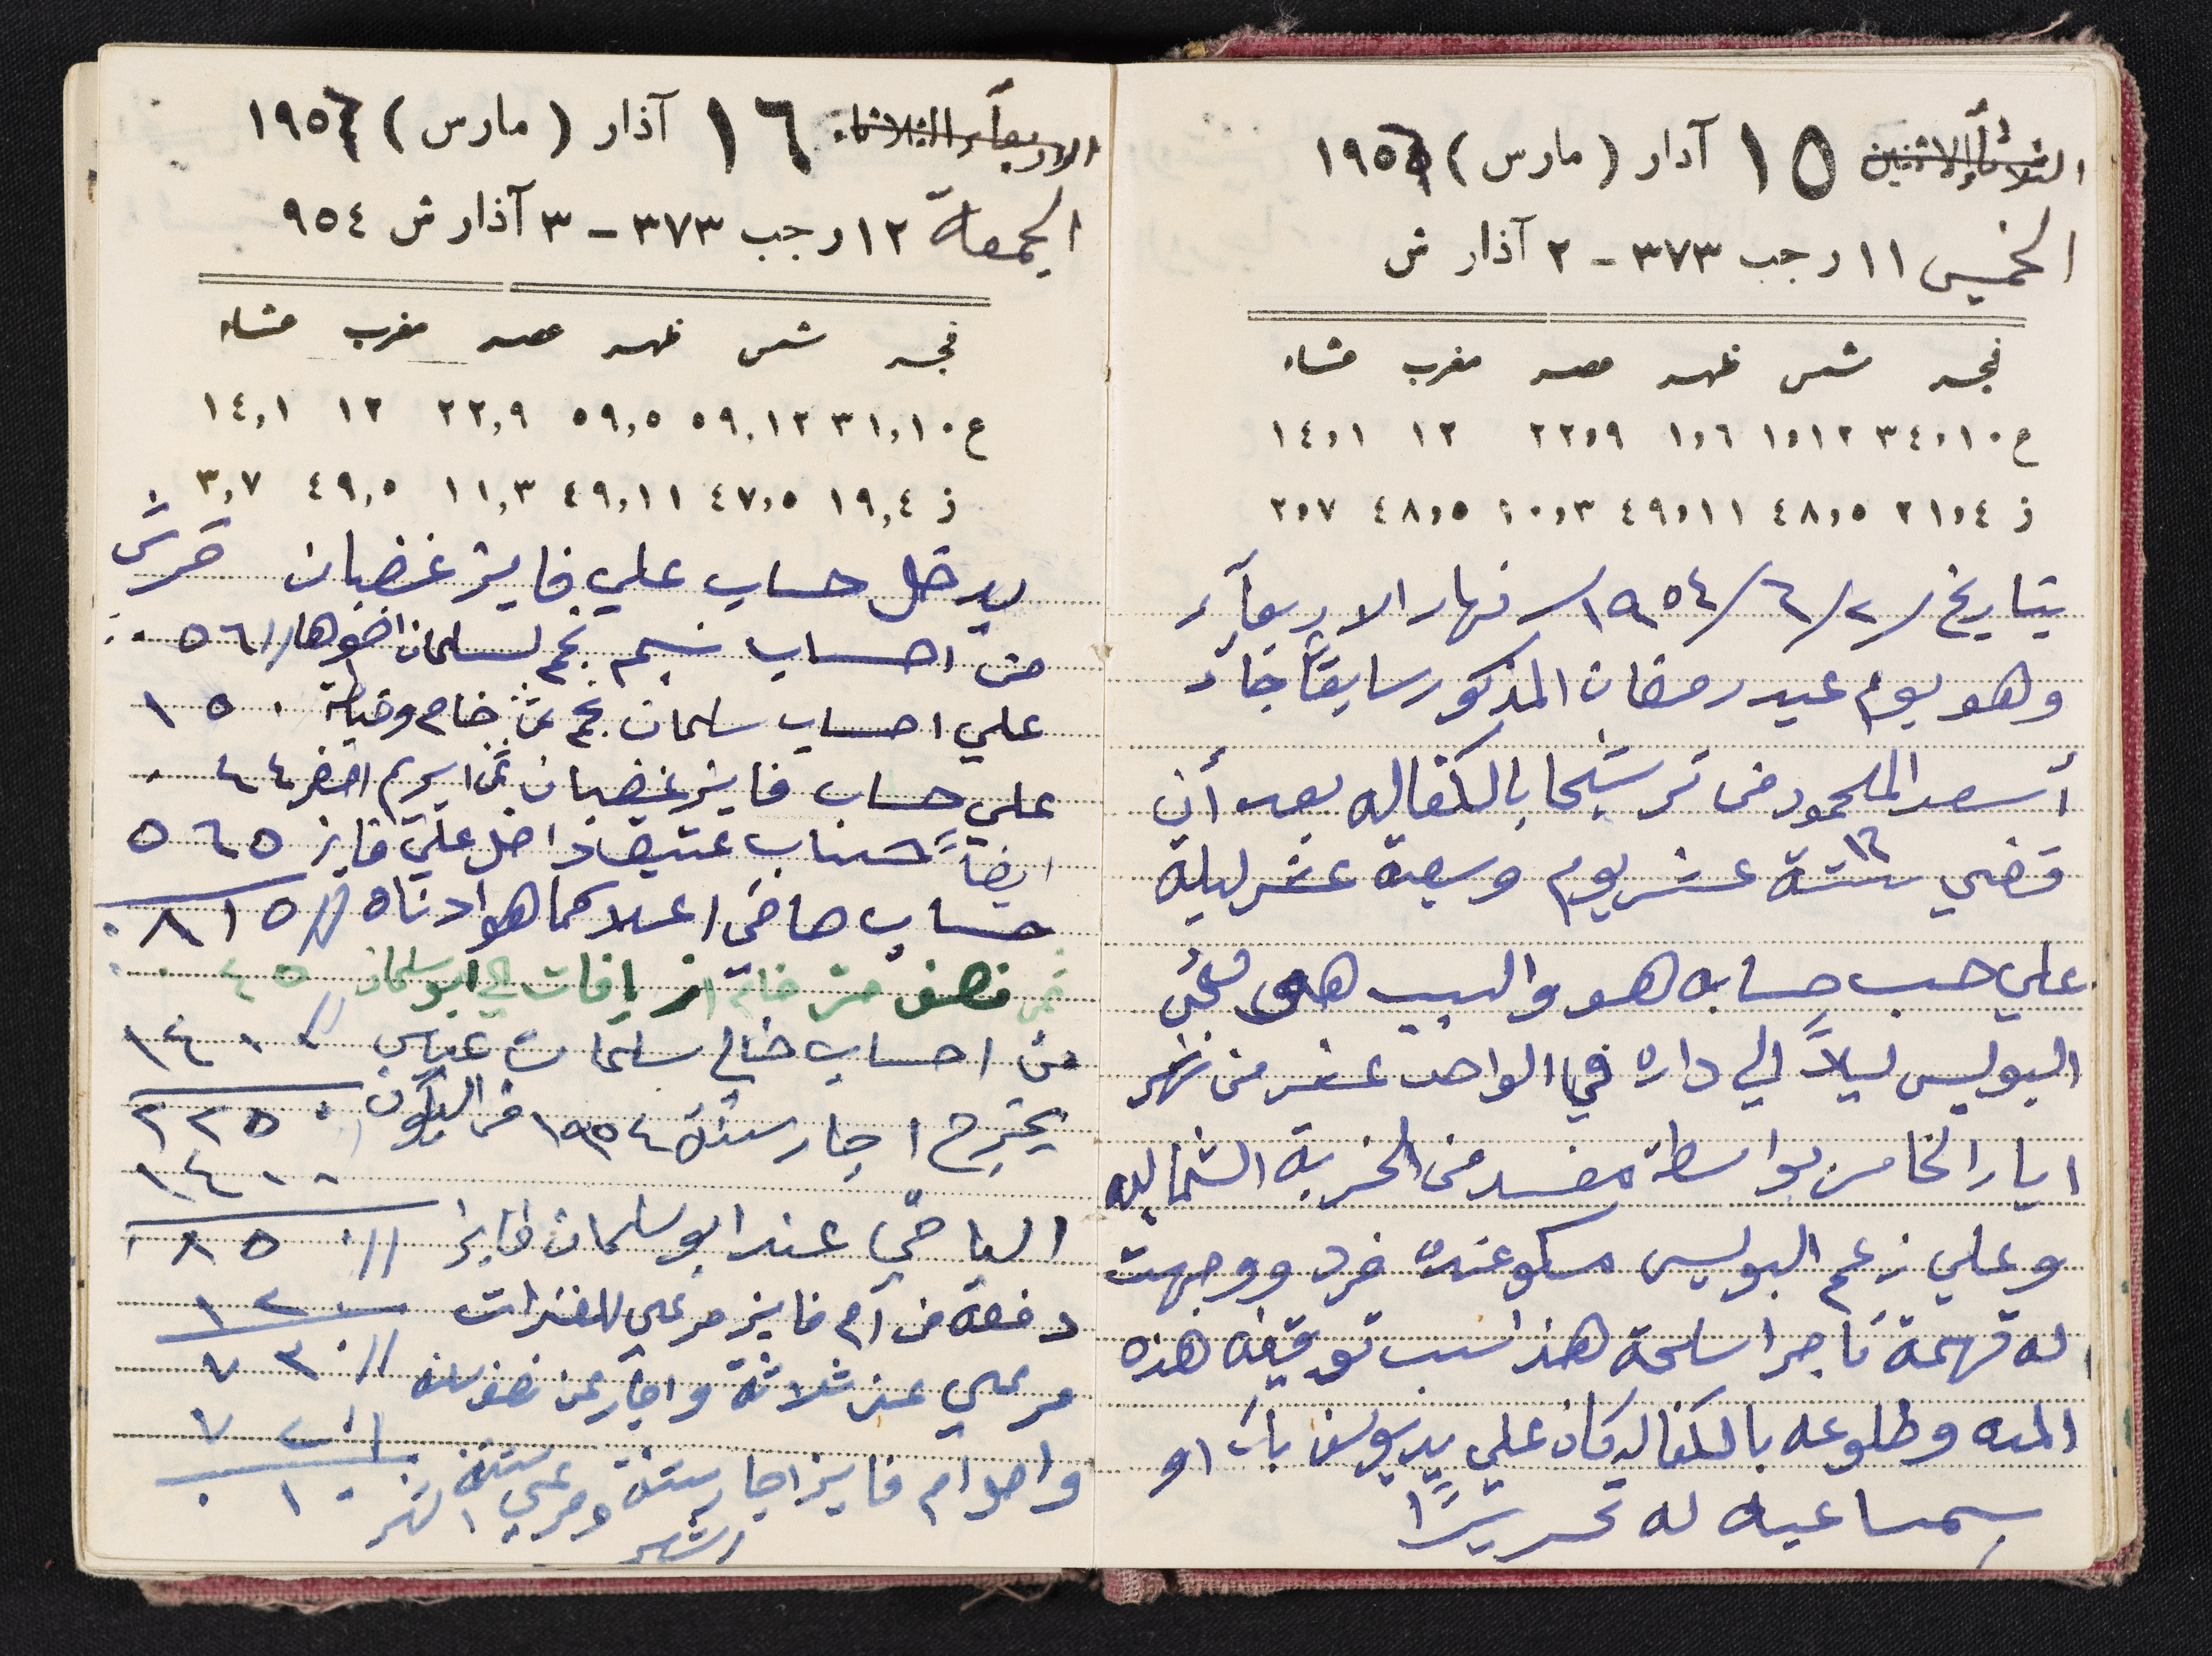 الثلاثاء الاثنين ١٥ آذار (مارس) ١٩٥٦
الخميس ١١ رجب ٣٧٣ - ٢ آذار ش
فجر شمس ظهر عصر مغرب عشاء
ع ٣٤,١٠ ١,١٢ ١,٦ ٢٢,٩ ١٢ ١٤,١
ز ٢١,٤ ٤٨,٥ ٤٩,١١ ١٠,٣ ٤٨,٥ ٢,٧
بتاريخ ٢/٦/١٩٥٤ نهار الاربعآء
وهو يوم عيد رمضان المذكور سابقاً جآء
أسعد المحمود من ترشيحا بالكفاله بعد أن
قضي ستة ١٦ عشر يوم وسبعة عشر ليلة
علي حسب حسابه هو والسبب هو
البوليس ليلاً الي داره في الواحد عشر من شهر
ايار الخامس بواسطة مفسد من الخربة الشماليه
وعلي زعم البوليس مسكو عنده فرد ووجهت
له تهمة تاجر اسلحة هذا سبب توقيفه هذه
المده وطلوعه بالكفاله كان علي يد يوسف باك او
بمساعيه له تحريرًا
الاربعآء الثلاثاء ١٦ آذار (مارس) ١٩٥٦
الجمعة ١٢ رجب ٣٧٣ - ٣ آذار ش ٩٥٤
فجر شمس ظهر عصر مغرب عشاء
ع ٣١,١٠ ٥٩,١٢ ٥٩,٥ ٢٢,٩ ١٢ ١٤,١
ز ١٩,٤ ٤٧,٥ ٤٩,١١ ١١,٣ ٤٩,٥ ٣,٧
يدخل حساب علي فايز غضبان قرش
من احساب نسيم نجم لسلمان اخوها // ٥٦٠
علي احساب سلمان نجم ثمن خام وخياطة ١٥٠
علي حساب فايز غضبان ثمن ابريم اخضر ٤٤٠
ايضاً حساب عتيق داخل علي فايز ٥٦٥
حساب صافي اعلا كما هو ادناه // ٨١٥٠
ثمن نصف متر خام الي ابو سلمان ٤٥٠
من احساب خالي سلمان عباس // ١٤٠٠
يخرج اجار سنة ١٩٥٤ من اليكون ٢٢٥٠
١٤٠٠
الباقي عند ابو سلمان فايز // ٨٥٠
دفعة من ام فايز مرعي للعنزات ١٢٠
مرعي عنز ثلاثة واجار عن نصف سنه // ٧٣٠
واصل ام فايز اجار سنة ومرعي ستة // ٧٢٠
اشهر ١٠